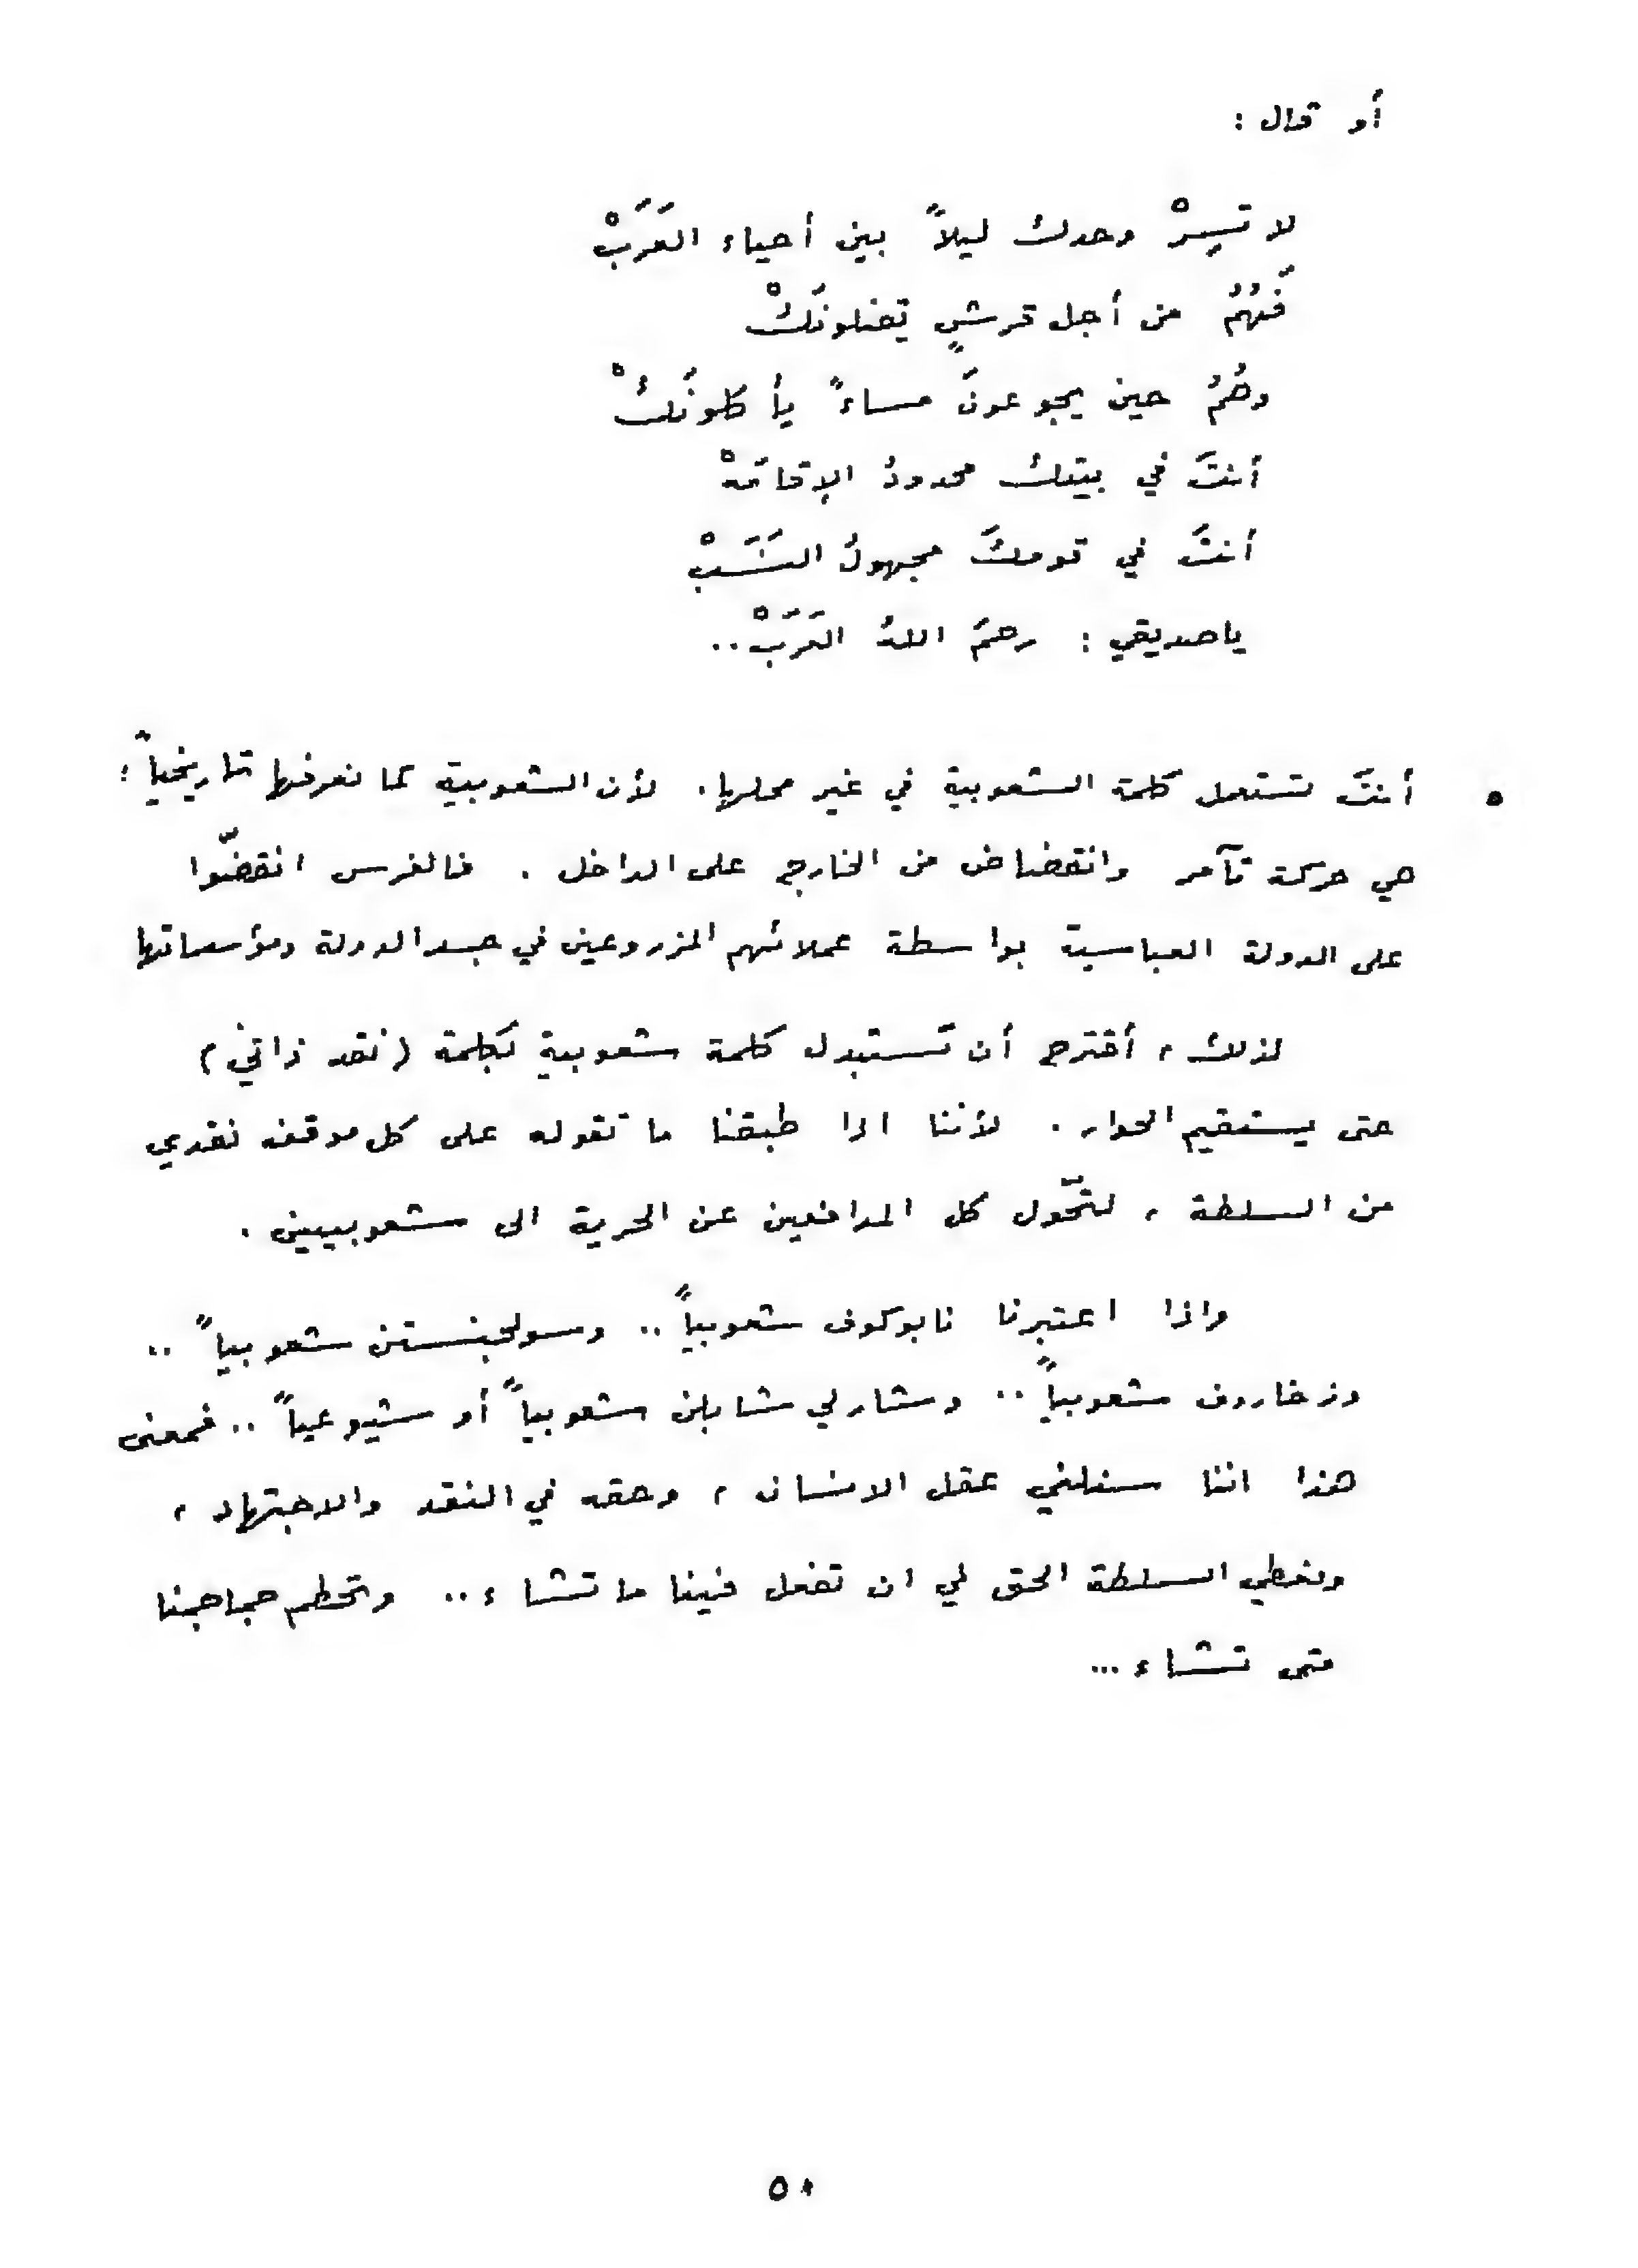 أو قال :
لا تَسِرْ وحدك ليلاً بين أحياء العَرَبْ
فَهُمُ من أجل قرشٍ يقتلونَكْ
وهُمُ حين يجوعونَ مساءً يأكلونَكْ
أنتَ في بيتك محدودُ الإقامَهْ
أنتَ في قومكَ مجهولُ النَسَبْ
يا صديقي : رحمَ اللهُ العَرَبْ ..
• أنتَ تستعمل كلمة الشعوبية في غير محلها . لأن الشعوبية كما نعرفها تاريخياً ؛
هي حركة تآمر وانقضاض من الخارج على الداخل . فالفرس انقضّوا
على الدولة العباسية بواسطة عملائهم المزروعين في جسد الدولة ومؤسساتها
لذلك ، أقترح أن تَستبدل كلمة شعوبية بكلمة ( نقد ذاتي )
حتى يستقيم الحوار . لأننا اذا طبقنا ما تقوله على كل موقف نقدي
من السلطة ، لتحّول كل المدافعين عن الحرية الى شعوبيين .
واذا اعتبرنا نابوكوف شعوبياً .. وسولجنستن شعوبياً ..
وزخاروف شعوبياً .. وشارلي شابلن شعوبياً أو شيوعياً .. فمعنى
هذا اننا سنلغي عقل الانسان ، وحقه في النقد والاجتهاد ،
ونعطي السلطة الحق لي ان تفعل فينا ما تشاء .. وتحطم جماجمنا
متى تشاء ...
٥٨